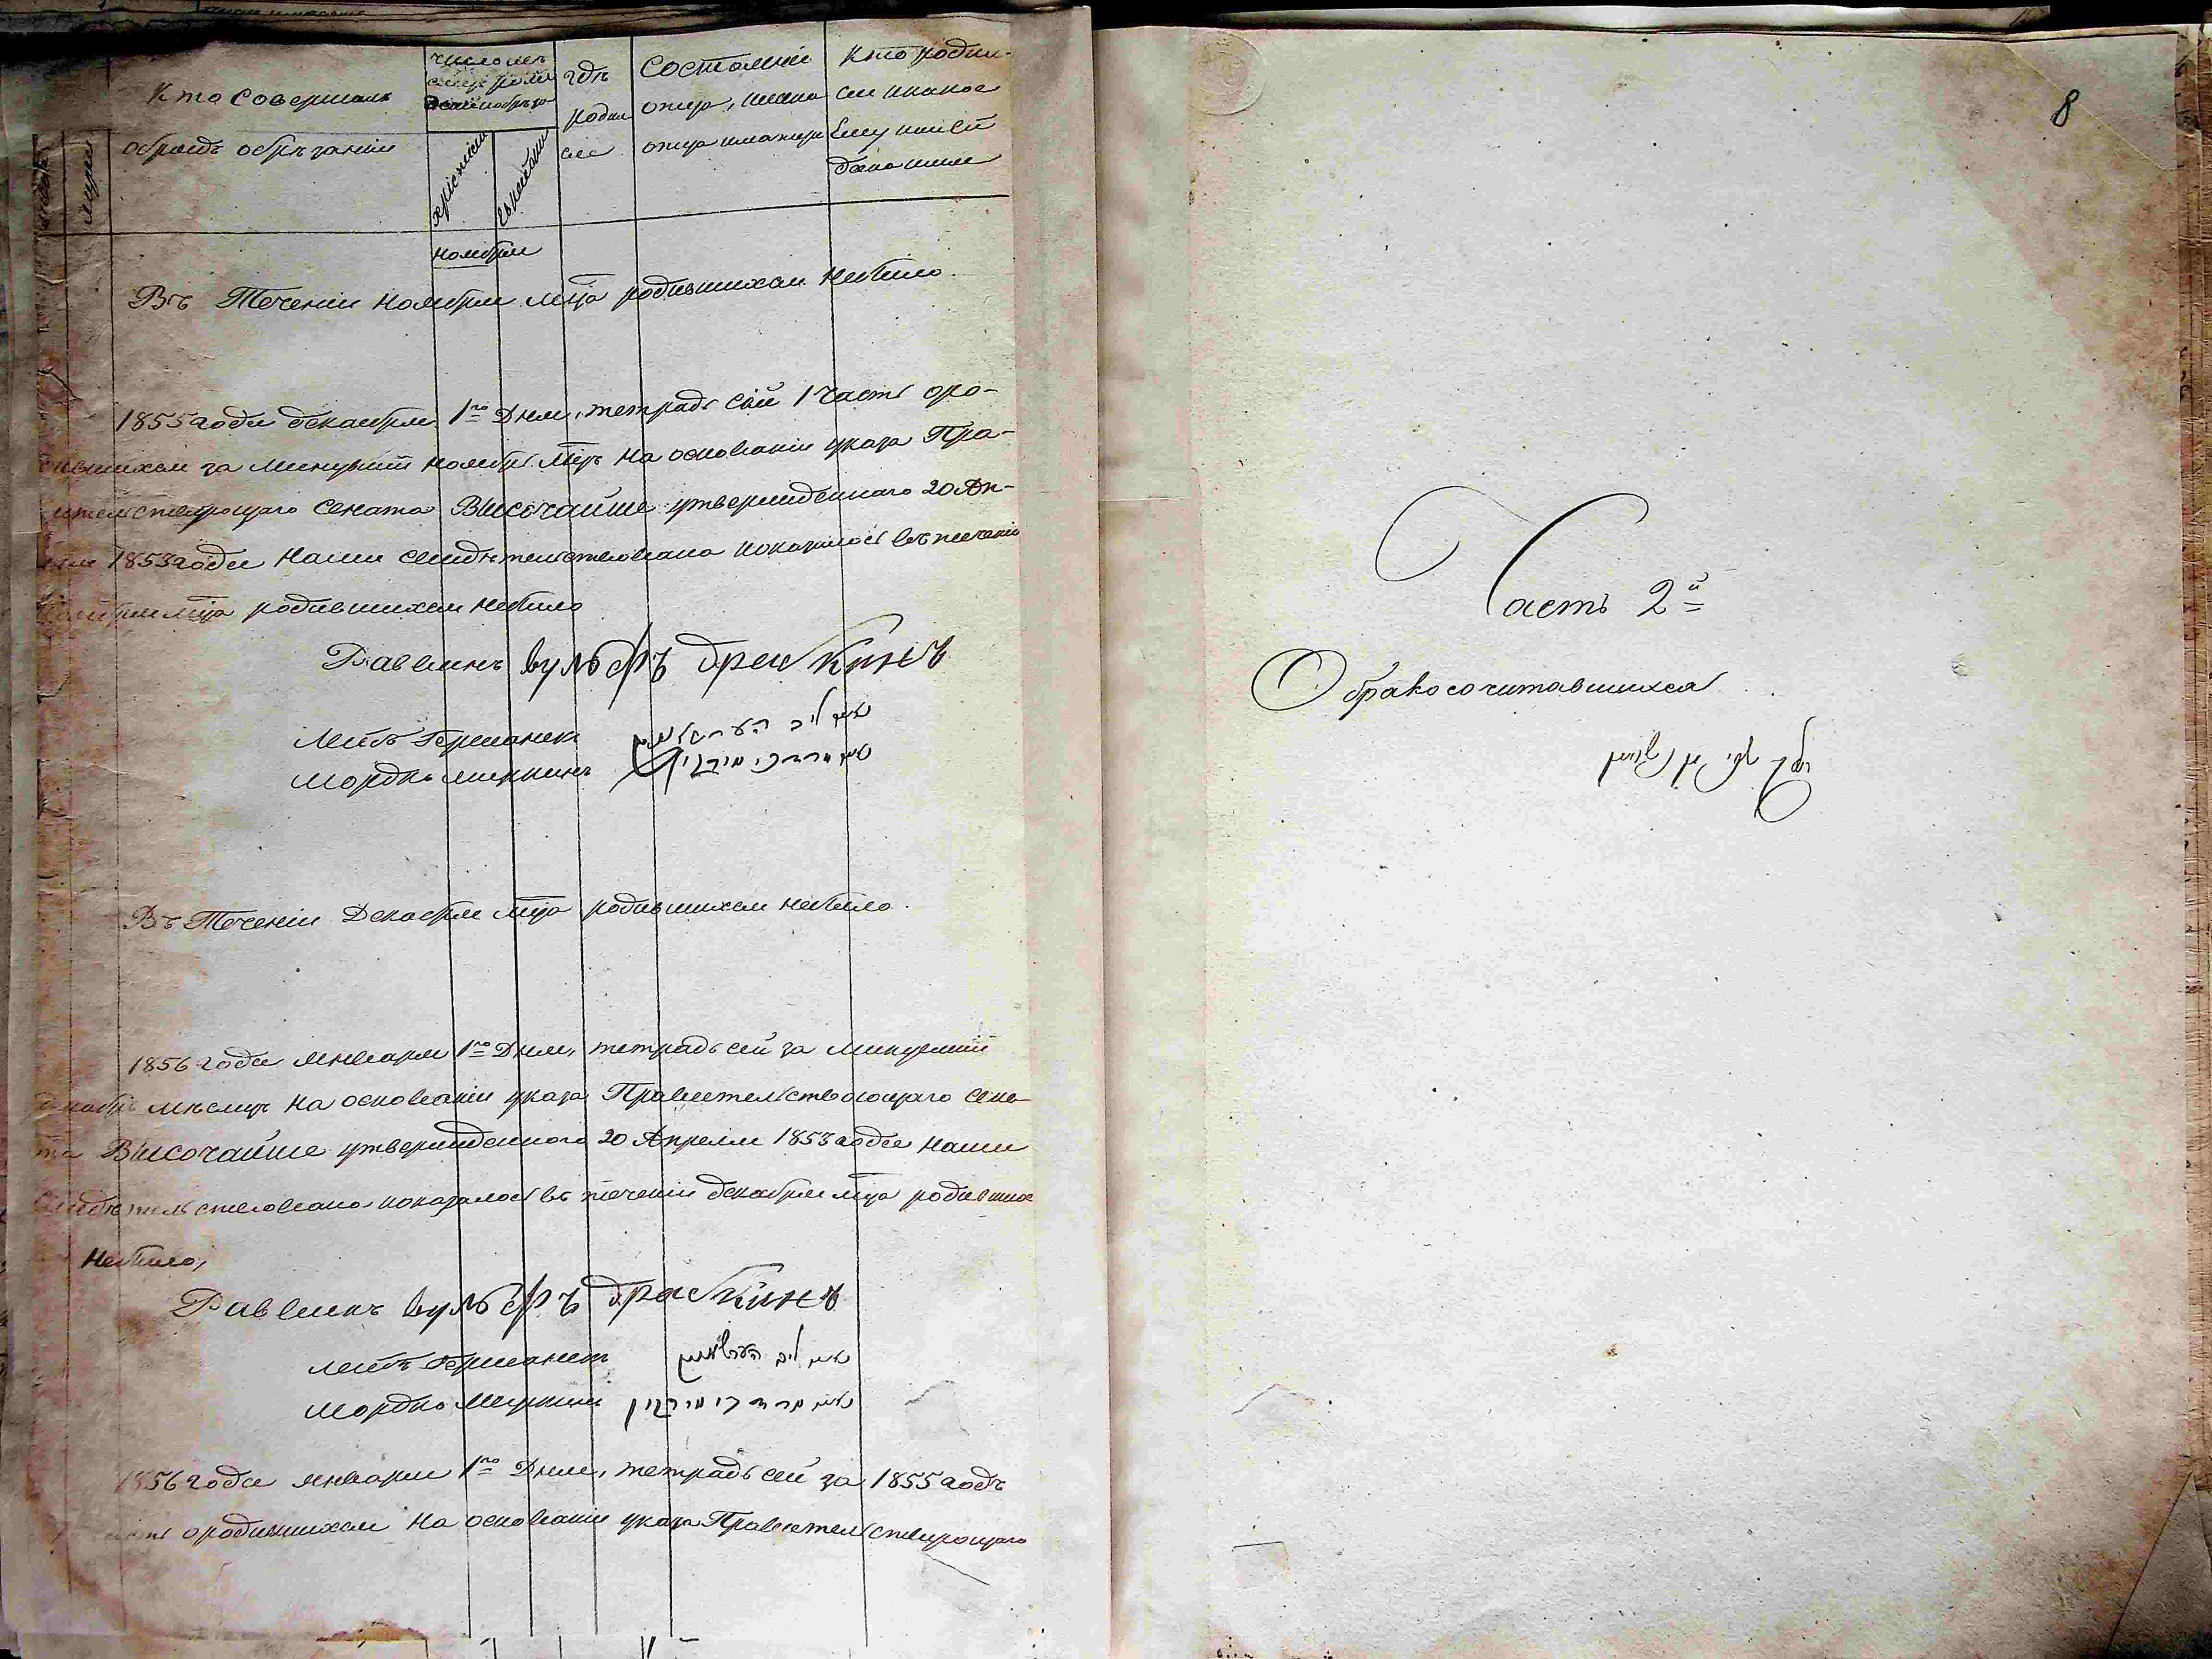 Кто совершалъ
обрядъ обрѣзанія
число мѣс
Христіянски
Еврейскій
гдѣ
родил
ся
Состояніе
отца, имена
отца и матери
Кто родил-
ся и какое
Ему или Ей
дано имя
ноября
Въ Теченіи ноября мца родившихся небыло.
1855 года декабря 1го Дня, тетрадь сія 1 часть оро-
дившихся за минувшій ноябрь мцъ на основаніи указа Пра-
вительствующаго Сената Высочайше утвержденнаго 20 Ап-
реля 1853 года нами свидѣтельствована и оказалось въ теченіи
ноября мца родившихся небыло
Раввинъ вульфъ драбкинъ
Лейбъ Германъ נאם ליב הערמאן
Мордко Миркинъ נאם מרדכי מירקין
Въ Теченіи Декабря мца родившихся небыло.
1856 года января 1го Дня, тетрадь сія за минувшій
декабрь мѣсяцъ на основаніи указа Правительствующаго Сена-
та Высочайше утвержденного 20 Апреля 1853 года нами
свидѣтельствована и оказалось въ теченіи декабря мца родившихся
небыло,
Раввинъ вульфъ драбкинъ
Лейбъ Германъ נאם ליב הערמאן
Мордко Миркинъ נאם מרדכי מירקין
1856 года января 1го Дня, тетрадь сія за 1855 годъ
часть ородившихся на основаніи указа Правительствующаго
8
Часть 2й
О бракосочитавшихся